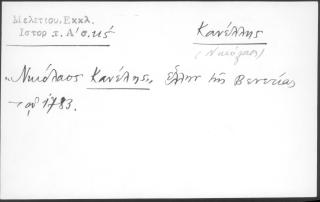 Μελετίου, Εκκλ.
Ιστορ τ. Α' σ. κς́
Κανέλλης
(Νικόλαος)
"Νικόλαος Κανέλης, Ἕλλην τῆς Βενετίας
1783.